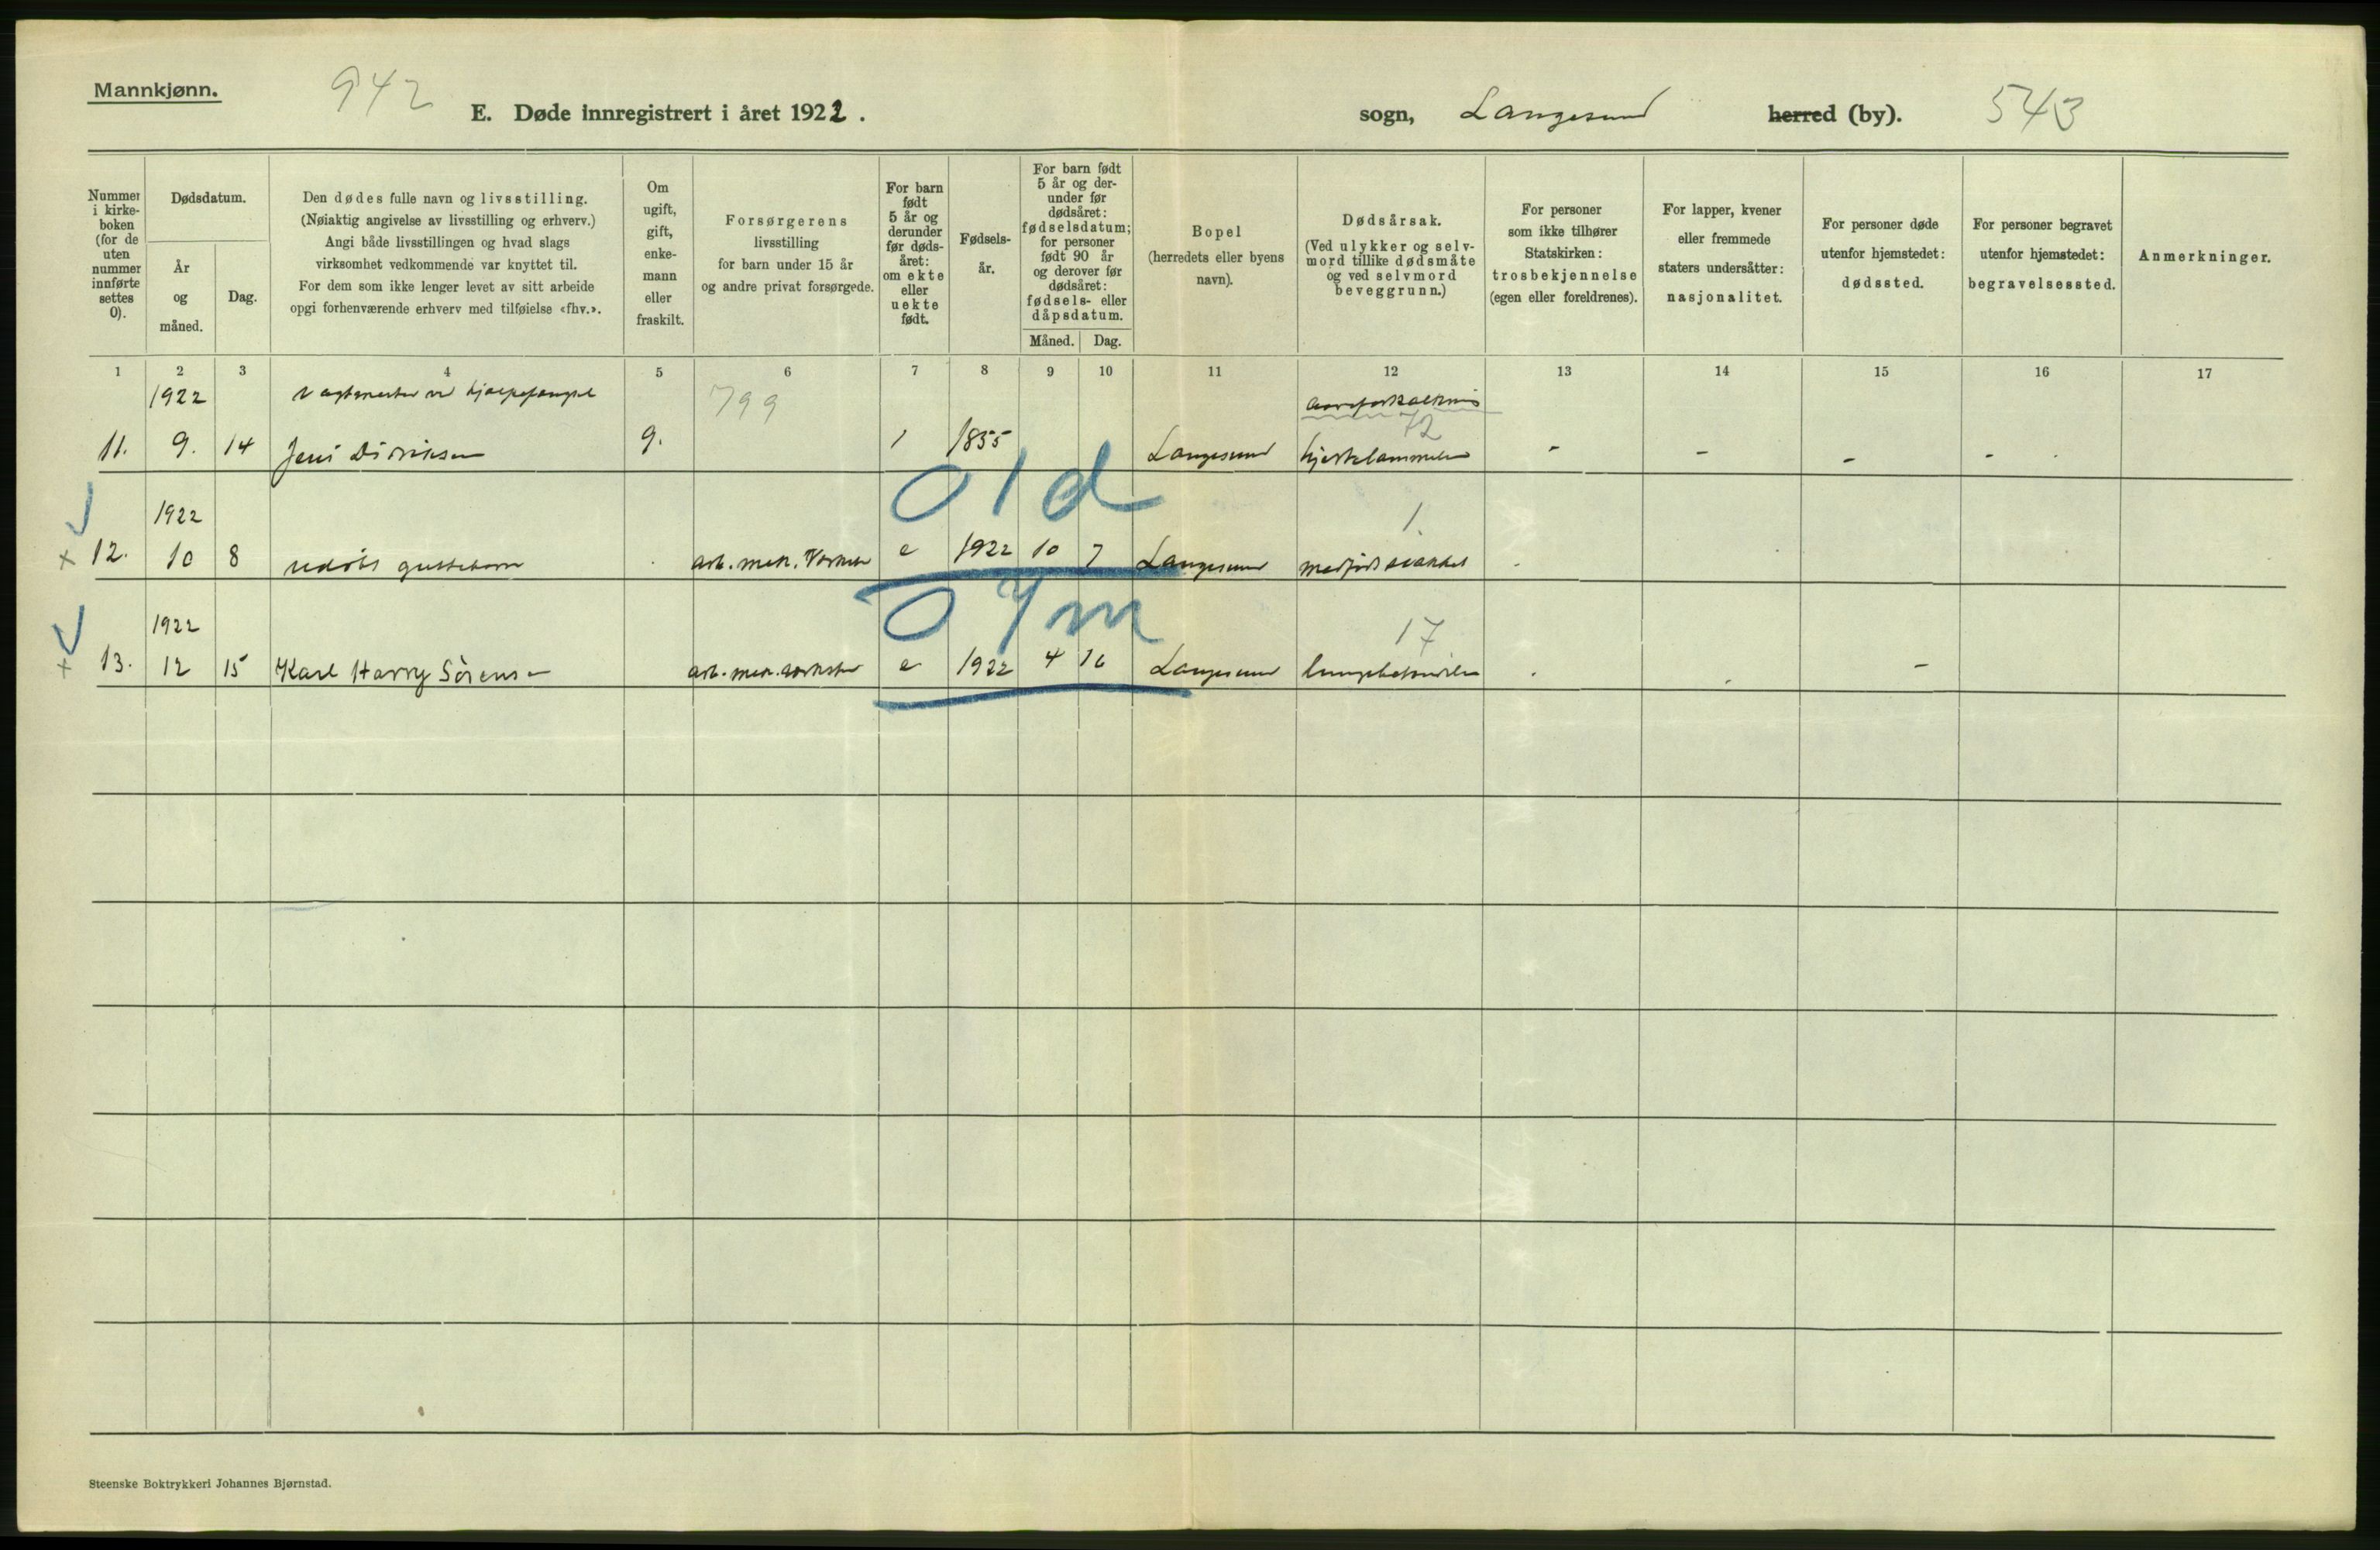 Mannkjønn.
942
E. Døde innregistrert i året 1922.
sogn, Langesund herred (by).
543
Nummer i kirkeboken (for de uten nummer innførte settes 0).
Dødsdatum.
År og måned.
Dag.
Den dødes fulle navn og livsstilling.
(Nøiaktig angivelse av livsstilling og erhverv.)
Angi både livsstillingen og hvad slags
virksomhet vedkommende var knyttet til.
For dem som ikke lenger levet av sitt arbeide
opgi forhenværende erhverv med tilføielse «fhv.».
Om ugift, gift, enkemann eller fraskilt.
Forsørgerens
livsstilling
for barn under 15 år
og andre privat forsørgede.
For barn født 5 år og derunder før dødsåret: om ekte eller uekte født.
Fødselsår.
For barn født 5 år og derunder før dødsåret: fødselsdatum; for personer født 90 år og derover før dødsåret: fødsels- eller dåpsdatum.
Måned. Dag.
Bopel
(herredets eller byens
navn).
Dødsårsak.
(Ved ulykker og selvmord tillike dødsmåte og ved selvmord beveggrunn.)
For personer
som ikke tilhører
Statskirken:
trosbekjennelse
(egen eller foreldrenes).
For lapper, kvener
eller fremmede
staters undersåtter:
nasjonalitet.
For personer døde
utenfor hjemstedet:
dødssted.
For personer begravet
utenfor hjemstedet:
begravelsessted.
Anmerkninger.
1 2 3 4 5 6 7 8 9 10 11 12 13 14 15 16 17
1922 799
72
11. 9. 14 Jens Diriksen g. 1 1855 Langesund hjertelammelse - - - -
0 1 d
1922 1.
x 12. 10 8 udøbt guttebarn arb. mek. Verksted e 1922 10 7 Langesund medfødt svakhet
0 7 m
1922 17
+ 13. 12 15 Karl Harry Sørensen arb. mek. verksted e 1922 4 16 Langesund lungebetendelse -
Steenske Boktrykkeri Johannes Bjørnstad.